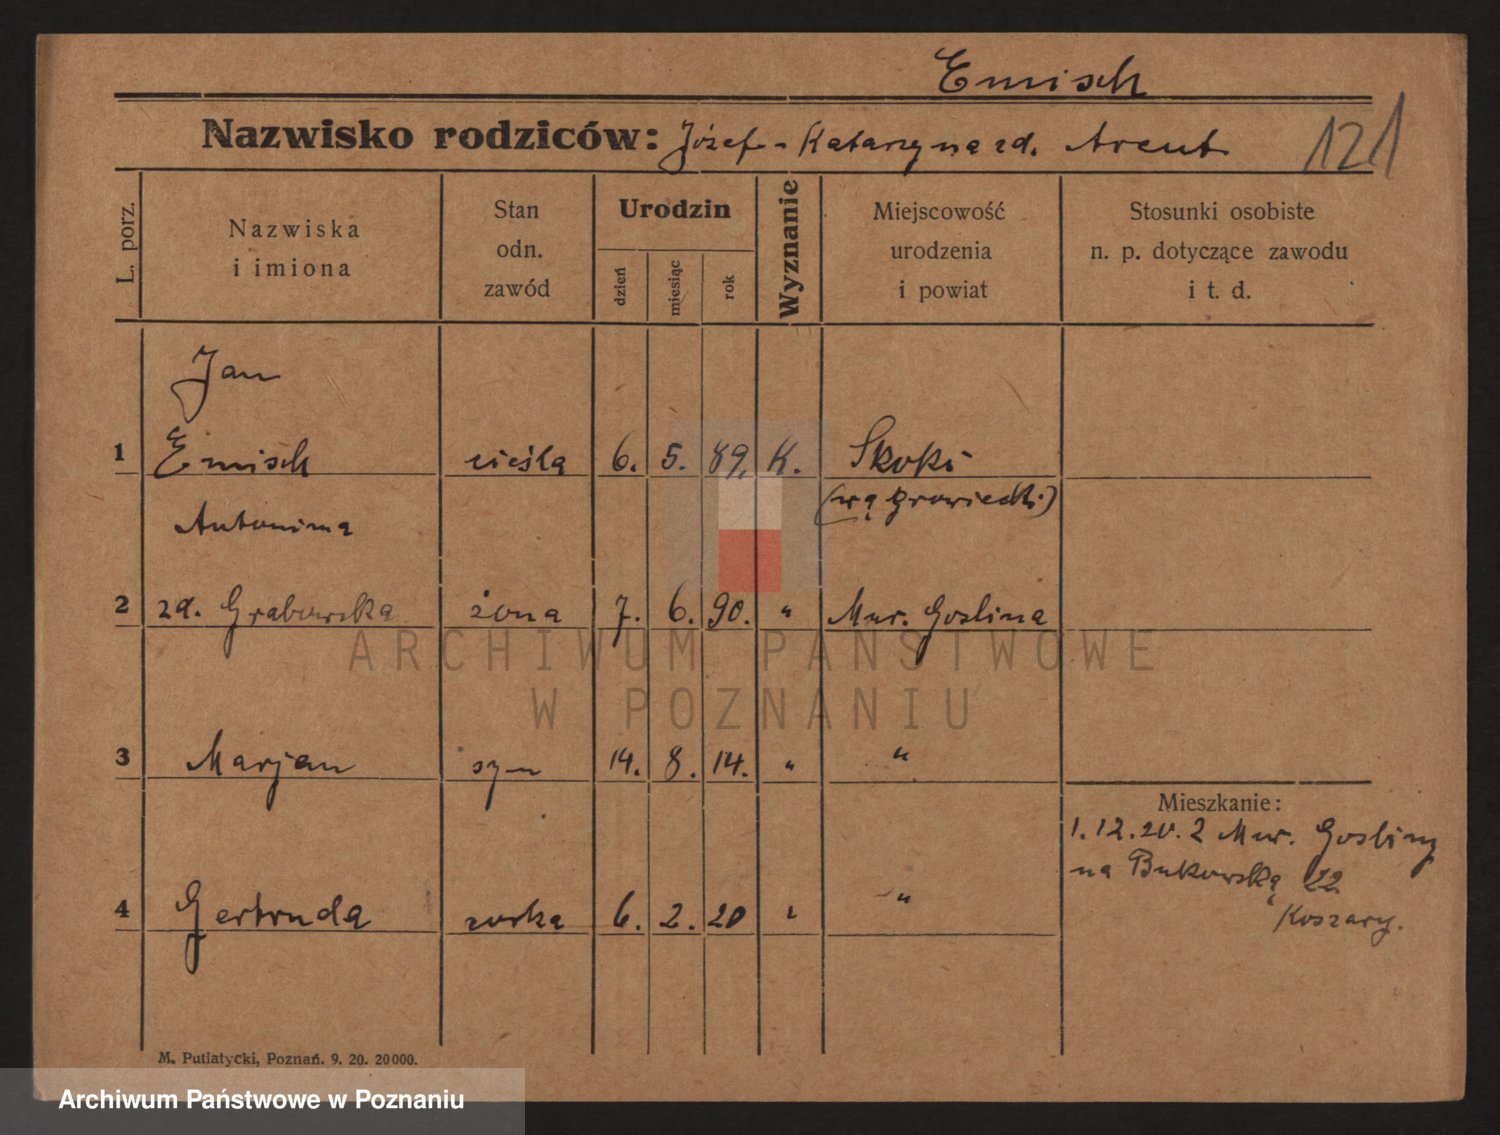 Emisch
Nazwisko rodziców: Józef - Katarzyna zd. Arent
121
L. porz.
Nazwiska
i imiona
Stan
odn.
zawód
Urodzin
dzień
miesiąc
rok
Wyznanie
Miejscowość
urodzenia
i powiat
Stosunki osobiste
n. p. dotyczące zawodu
i t. d.
Jan
1 Emisch cieśla 6. 5. 89. K. Skoki
(wągrowiecki)
Antonina
2 zd. Grabowska żona 7. 6. 90. " Mur. Goslina
ARCHIWUM PAŃSTWOWE
W POZNANIU
3 Marjan syn 14. 8. 14. " "
Mieszkanie:
1.12.20. z Mur. Gosliny
na Bukowską 22
Koszary.
4 Gertruda corka 6. 2. 20 " "
M. Putiatycki, Poznań. 9. 20. 20000.
Archiwum Państwowe w Poznaniu